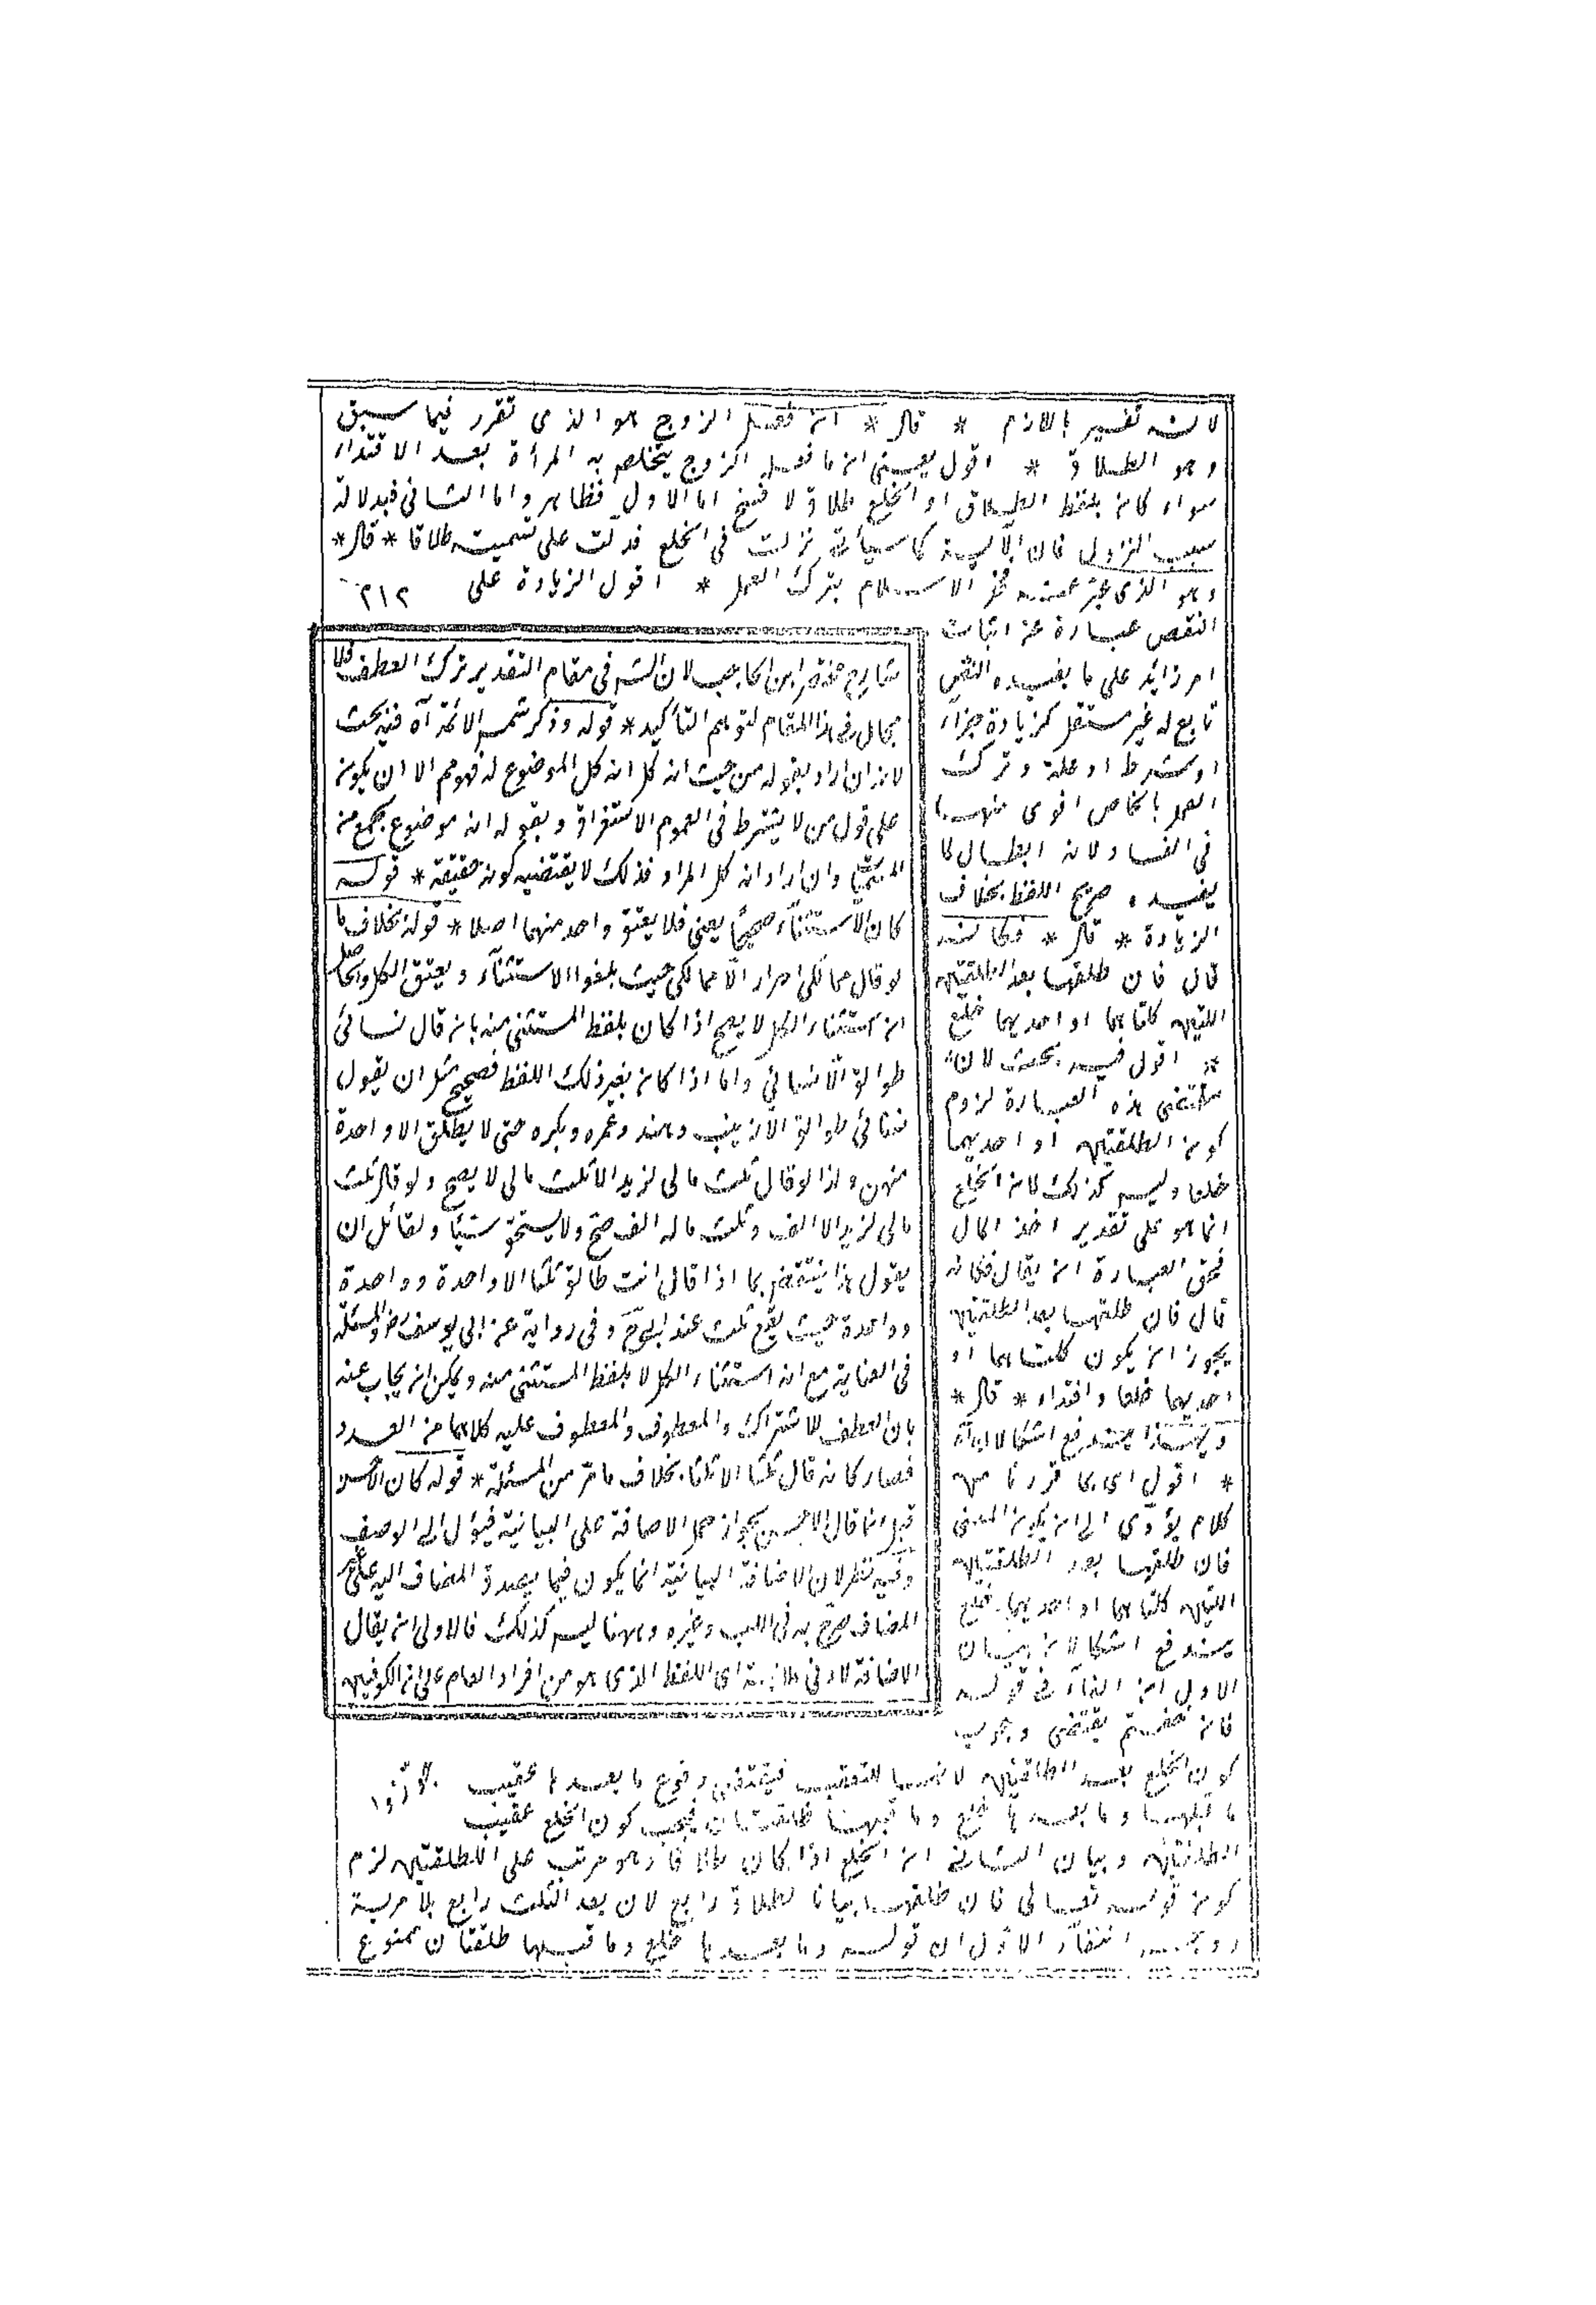 لانه تفسير باللازم * قال * ان فعل الزوج هو الذى تقرر فيما سبق
وهو الطلاق * اقول يعنى ان ما فعل الزوج يتخلص به المرأة بعد الافتداء
سواء كان بلفظ الطلاق او الخلع طلاق لا فسخ اما الاول فظاهر واما الثانى فبدلالة
سبب النزول فان الآية كما سيأتى نزلت فى الخلع فدلت على تسميته طلاقا * قال *
وهو الذى عبر عنه فخر الاسلام بترك العمل * اقول الزيادة على
٢١٢
النقص عبارة عن اثبات
امر زائد على ما يفيده النص
تابع له غير مستقل كزيادة جزء
او شرط او علة وترك
العمل بالخاص اقوى منها
فى الفساد لانه ابطال لما
يفيده صريح اللفظ بخلاف
الزيادة * قال * فكانه
قال فان طلقها بعد الطلقتين
اللتين كلتاهما او احديهما خلع
* اقول فيه بحث لان
مقتضى هذه العبارة لزوم
كون الطلقتين او احديهما
خلعا وليس كذلك لان الخلع
انما هو على تقدير اخذ المال
فحق العبارة ان يقال فكانه
قال فان طلقها بعد الطلقتين
يجوز ان يكون كلتاهما او
احديهما خلعا وافتداء * قال *
وبهذا يندفع اشكالان آه
* اقول اى بما قررنا من
كلام يؤدى الى ان يكون المعنى
فان طلقها بعد الطلقتين
اللتين كلتاهما او احديهما خلع
يندفع اشكالان بيان
الاول ان الفاء فى قوله
فان خفتم يقتضى وجوب
كون الخلع بعد الطلقتين لانها للتعقيب فيقتضى وقوع ما بعدها عقيب
ما قبلها وما بعدها خلع وما قبلها طلقتان فيجب كون الخلع عقيب
الطلقتين وبيان الثانى ان الخلع اذا كان طلاقا وهو مرتب على الطلقتين لزم
كون قوله تعالى فان طلقها بيانا لطلاق رابع لان بعد الثلث رابع بلا مرية
ووجه انتفاء الاول ان قوله وما بعدها خلع وما قبلها طلقتان ممنوع
شارح مختصر ابن الحاجب لان الشئ فى مقام التقدير ترك العطف فلا
مجال فى هذا المقام لتوهم التأكيد * قوله وذكر شمس الائمة آه فيه بحث
لانه ان اراد بقوله من حيث انه كل انه كل الموضوع له فهو مم الا ان يكون
على قول من لا يشترط فى العموم الاستغراق وبقوله انه موضوع لجمع من
المسميات وان اراد انه كل المراد فذلك لا يقتضيه كونه حقيقة * قوله
كان الاستثناء صحيحا يعنى فلا يعتق واحد منهما اصلا * قوله بخلاف ما
لو قال مماليكى احرار الا مماليكى حيث يلغوا الاستثناء ويعتق الكل والحاصل
ان استثناء الكل لا يصح اذا كان بلفظ المستثنى منه بان قال نسائى
طوالق الا نسائى واما اذا كان بغير ذلك اللفظ فصحيح مثل ان يقول
نسائى طوالق الا زينب وهند وعمره وبكره حتى لا يطلق الا واحدة
منهن وكذا لو قال ثلث مالى لزيد الا ثلث مالى لا يصح ولو قال ثلث
مالى لزيد الا الف وثلث ماله الف صح ولا يستحق شيئا ولقائل ان
يقول هذا ينتقض بما اذا قال انت طالق ثلثا الا واحدة وواحدة
وواحدة حيث يقع ثلث عند ابى ح وفى رواية عن ابى يوسف رح والمسئلة
فى العناية مع انه استثناء الكل لا بلفظ المستثنى منه ويمكن ان يجاب عنه
بان العطف للاشتراك والمعطوف والمعطوف عليه كلاهما من العدد
فصار كانه قال ثلثا الا ثلثا بخلاف ما مر من المسئلة * قوله كان الاحسن
قيل انما قال الاحسن لجواز حمل الاضافة على البيانية فيؤل الى الوصف
وفيه نظر لان الاضافة البيانية انما يكون فيما يصدق المضاف اليه على
المضاف صرح به فى اللب وغيره وههنا ليس كذلك فالاولى ان يقال
الاضافة لادنى ملابسة اى اللفظ الذى هو من افراد العام على ان الكوفيين